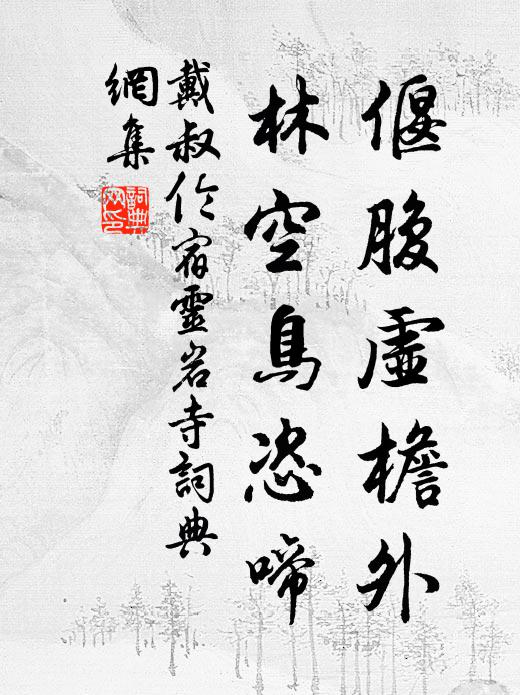 偃腹虛檐外
林空鳥恣啼
戴叔伦宿靈岩寺詞典
網集
詞典網印